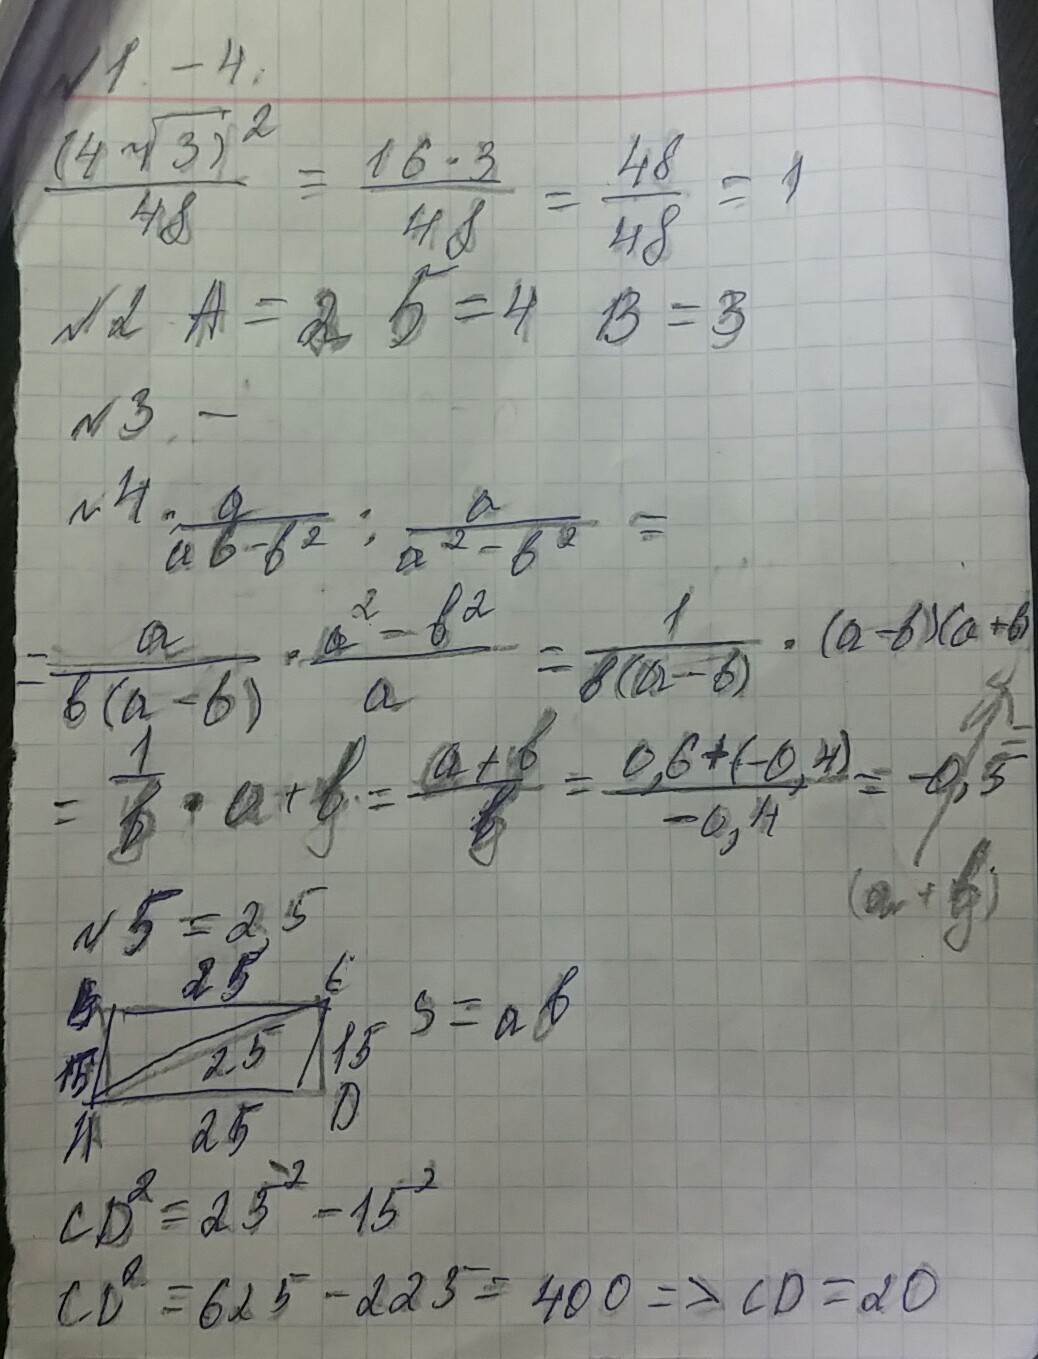 №1. – 4.
(4√3)² / 48 = 16·3 / 48 = 48 / 48 = 1
№2 А = 2 Б = 4 В = 3
№3. –
№4. a / (ab – b²) : a / (a² – b²) =
= a / b(a – b) · (a² – b²) / a = 1 / b(a – b) · (a – b)(a + b) =
= 1 / b · a + b = (a + b) / b = (0,6 + (–0,4)) / –0,4 = –0,5
(a + b)
№5 = 2,5
B 25 C S = ab
15 25 15
A 25 D
CD² = 25² – 15²
CD² = 625 – 225 = 400 => CD = 20